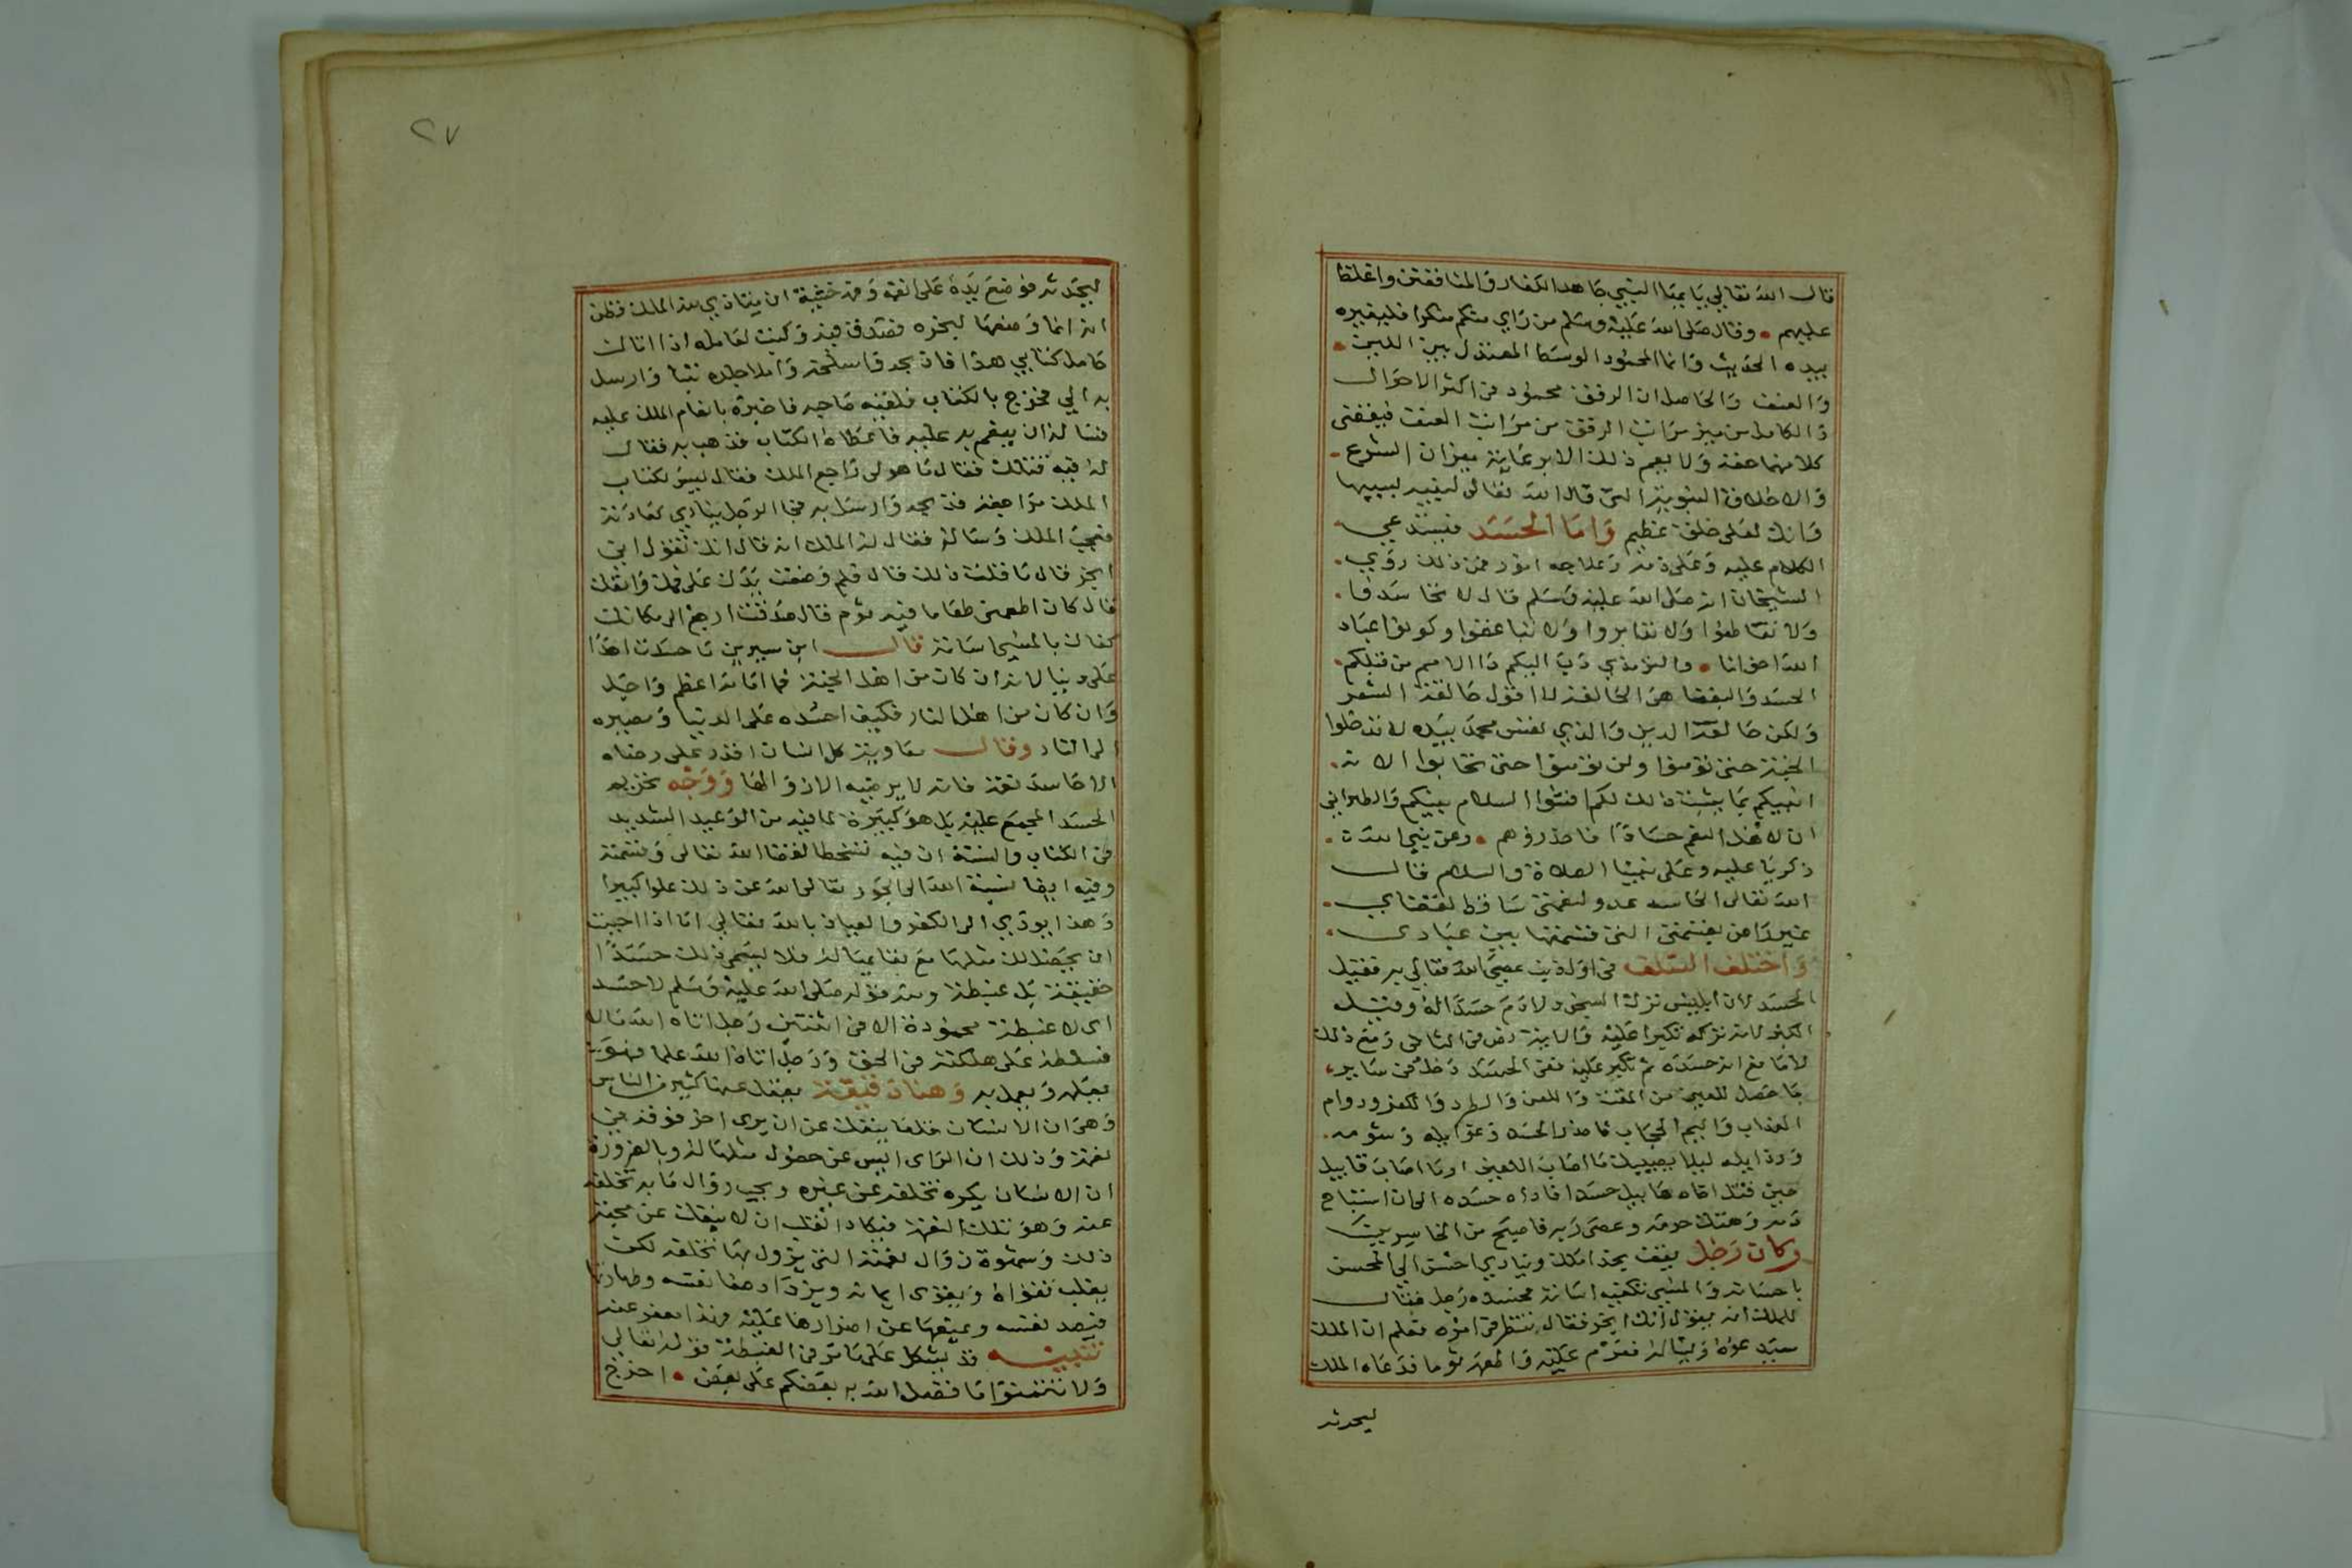 قال الله تعالى يا ايها النبي جاهد الكفار والمنافقين واغلظ
عليهم • وقال صلى الله عليه وسلم من راي منكم منكرا فليغيره
بيده الحديث وانما المحمود الوسط المعتدل بين اللين •
والعنف والحاصل ان الرفق محمود في اكثر الاحوال
والكامل من ميز مراتب الرفق من مراتب العنف فيعطي
كلا منهما حقه ولا يعم ذلك الا برعاية ميزان الشرع
والاخلاق النبوية التي قال الله تعالى لنبيه بسببها
وانك لعلى خلق عظيم واما الحسد فيستدعي
الكلام عليه وعلى ذمه وعلاجه امور فمن ذلك روي
الشيخان انه صلى الله عليه وسلم قال لا تحاسدوا
ولا تقاطعوا ولا تدابروا ولا تباغضوا وكونوا عباد
الله اخوانا • والترمذي دب اليكم داء الامم من قبلكم
الحسد والبغضا هي الحالقة لا اقول حالقة الشعر
ولكن حالقة الدين والذي نفس محمد بيده لا تدخلوا
الجنة حتى تؤمنوا ولن تؤمنوا حتى تحابوا الا
انبيكم بما يثبت ذلك لكم افشوا السلام بينكم والطبراني
ان لاهل النعم حسادا فاحذروهم • وعن نبي الله
زكريا عليه وعلى نبينا الصلاة والسلام قال
الله تعالى الحاسد عدو لنعمتي ساخط لقضاي
غير راض بقسمتي التي قسمتها بين عبادي
واختلف السلف في اول ذنب عصي الله تعالى به فقيل
الحسد لان ابليس ترك السجود لادم حسدا له وقيل
الكبر لانه تركه تكبرا عليه والاية نص في الثاني ومع ذلك
لا مانع انه حسده ثم تكبر عليه ففي الحسد دخل في ساير
ما حصل للعين من المقت واللعن والطرد والكفر ودوام
العذاب واليم الحجاب فاحذر الحسد وغوايله وشومه
ورذايله ليلا يصيبك ما اصاب اللعين او ما اصاب قابيل
حين قتل اخاه هابيل حسدا فاداه حسده الى ان استباح
دمه وهتك حرمه وعصى ربه فاصبح من الخاسرين
وكان رجل يقف بحذا ملك وينادي احسن الى المحسن
باحسانه والمسي تكفيه اساته فحسده رجل فقال
للملك انه يقول انك ابخر فقال ننتظر في امره فعلم ان الملك
سيدعوه وليساله فعزم عليه واطعمه ثوما فدعاه الملك
ليحدثه
٢٧
ليحدثه فوضع يده على انفه وفمه خشية ان يتاذي به الملك فظن
انه انما وضعها لبخره فصدق فيه وكتب لعامله اذا اتاك
حامل كتابي هذا فاذبحه واسلخه واملا جلده تبنا وارسل
به الي فخرج بالكتاب فلقيه صاحبه فاخبره بانعام الملك عليه
فساله ان ينعم به عليه فاعطاه الكتاب فذهب به فقال
له فيه قتلك فقال ما هو لي راجع الملك فقال ليس لكتاب
الملك مراجعة فذبحه وارسل به فجا الرجل ينادي كعادته
فعجب الملك وساله فقال له الملك انه قال انك تقول اني
ابخر قال ما قلت ذلك قال فلم وضعت يدك على فمك وانفك
قال كان اطعمني طعاما فيه ثوم قال صدقت ارجع الى مكانك
كفاك بالمسي اساته قال ابن سيرين ما حسدت احدا
على دنيا لانه ان كان من اهل الجنة فما امامه اعظم واجل
وان كان من اهل النار فكيف احسده على الدنيا ومصيره
الى النار وقال معاوية كل انسان اقدر على رضاه
الا حاسد نعمة فانه لا يرضيه الا زوالها ووجه تحريم
الحسد المجمع عليه بل هو كبيرة لما فيه من الوعيد الشديد
في الكتاب والسنة ان فيه تسخطا لقضا الله تعالى وقسمته
وفيه ايضا نسبة الله الى الجور تعالى الله عن ذلك علوا كبيرا
وهذا يودي الى الكفر والعياذ بالله تعالى اما اذا احببت
ان يحصل لك مثلها مع بقايها له فلا يسمى ذلك حسدا
حقيقة بل غبطة ومنه قوله صلى الله عليه وسلم لا حسد
اى لا غبطة محمودة الا في اثنتين رجل اتاه الله مالا
فسلطه على هلكته في الحق ورجل اتاه الله علما فهو
يعمل ويعمل به وهنا دقيقة يغفل عنها كثير من الناس
وهي ان الانسان قلما ينفك عن ان يرى اخر فوقه في
نعمة وذلك ان الراى ايس عن حصول مثلها له وبالضرورة
ان الانسان يكره تخلفه عن غيره ويحب زوال ما به تخلفه
عنه وهو تلك النعمة فيكاد القلب ان لا ينفك عن محبة
ذلك وشهوة زوال نعمته التي يزول بها تخلفه لكن
يغلب تقواه ويقوى ايمانه ويزداد صفا نفسه وطهارتها
فيصد نفسه ويمنعها عن اضرارها عليه فهذا يعفو عنه
تنبيه قد يشكل على ما مر في الغبطة قوله تعالى
ولا تتمنوا ما فضل الله به بعضكم على بعض • اخرج